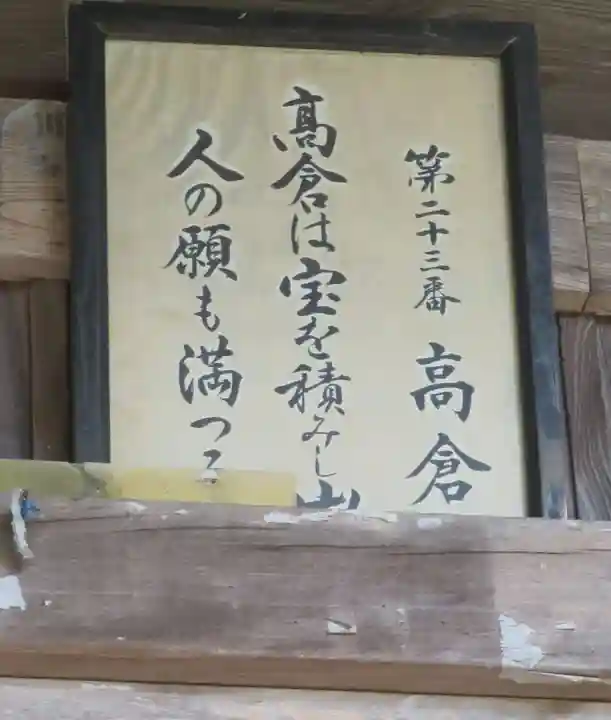 第二十三番 高倉
高倉は宝を積みし山
人の願も満つる